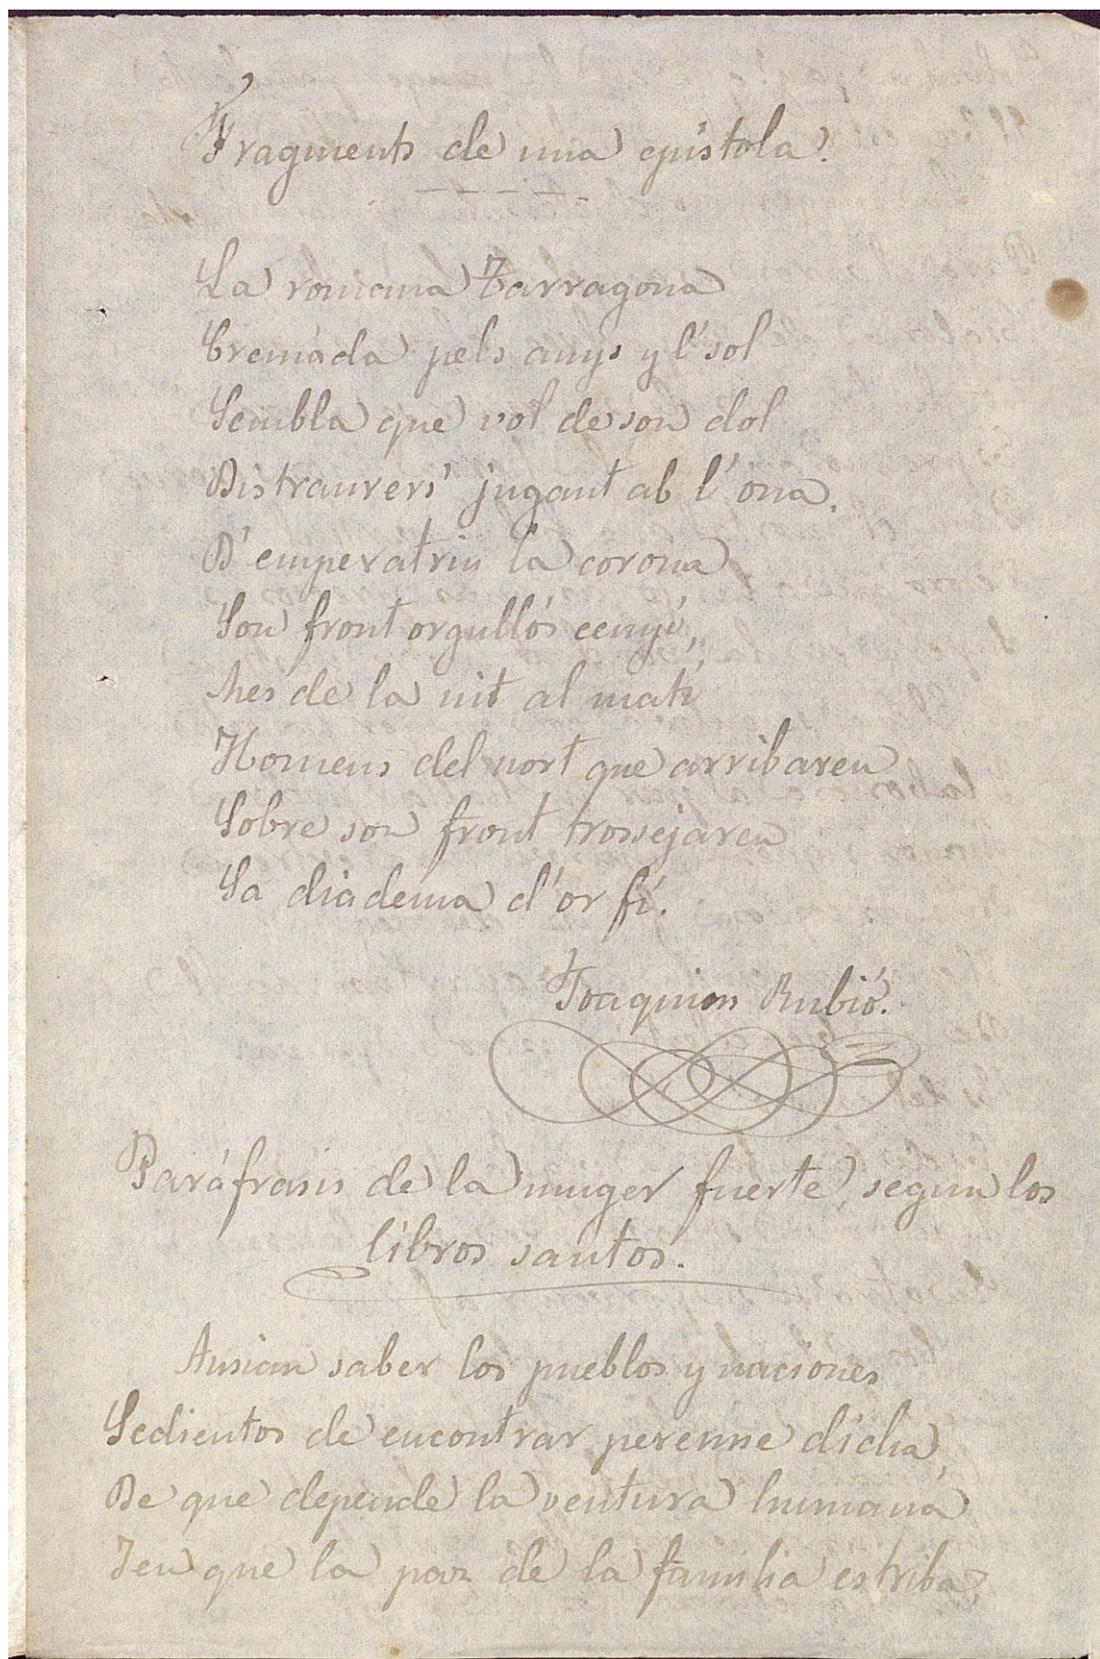 Fragments de una epístola.
La romana Tarragona
Cremada pels anys y l' sol
Sembla que vol de son dol
Distraurers' jugant ab l' ona.
D' emperatriu la corona
Son front orgullós cenyí,
Mes de la nit al matí
Homens del nort que arribaren
Sobre son front trossejaren
Sa diadema d' or fí.
Joaquim Rubió.
Paráfrasis de la muger fuerte, segun los
libros santos.
Ansian saber los pueblos y naciones
Sedientos de encontrar perenne dicha,
De que depende la ventura humana
Y en que la paz de la familia estriba,